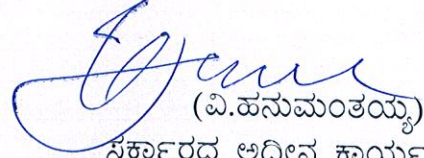 (ವಿ.ಹನುಮಂತಯ್ಯ)
ಸರ್ಕಾರದ ಅಧೀನ